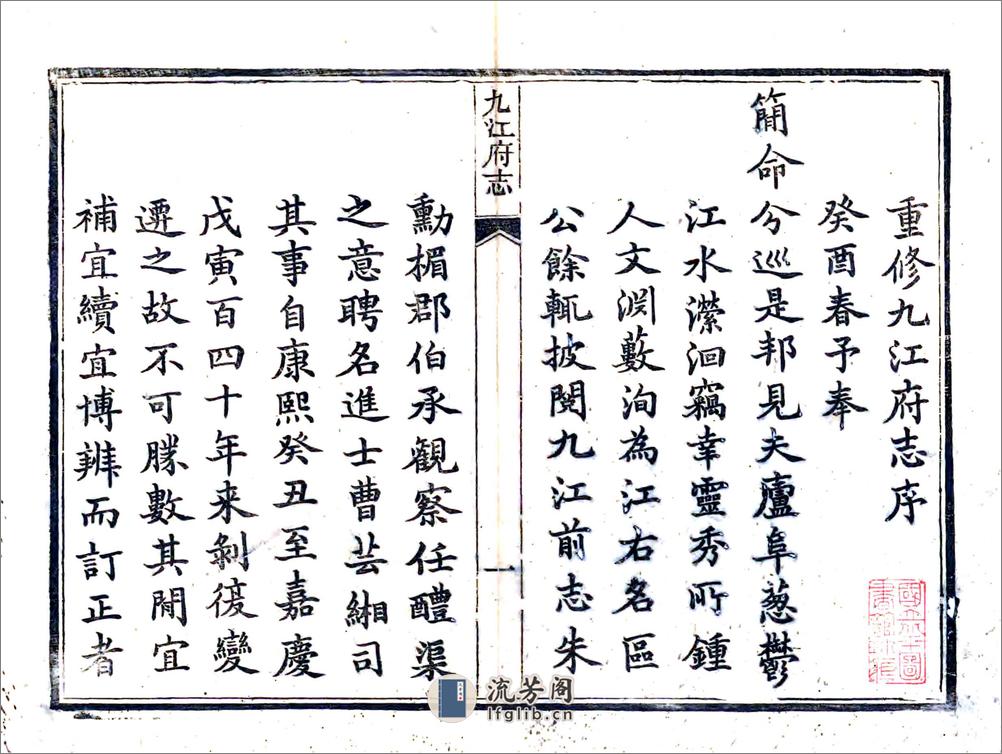 重修九江府志序
癸酉春予奉
簡命分巡是邦見夫廬阜蔥鬱
江水瀠洄竊幸靈秀所鍾
人文淵藪洵為江右名區
公餘輒披閱九江前志朱
九江府志
一
勳楣郡伯承觀察任醴渠
之意聘名進士曹芸緗司
其事自康熙癸丑至嘉慶
戊寅百四十年来剝復變
遷之故不可勝數其間宜
補宜續宜博辨而訂正者
流芳阁
lfglib.cn